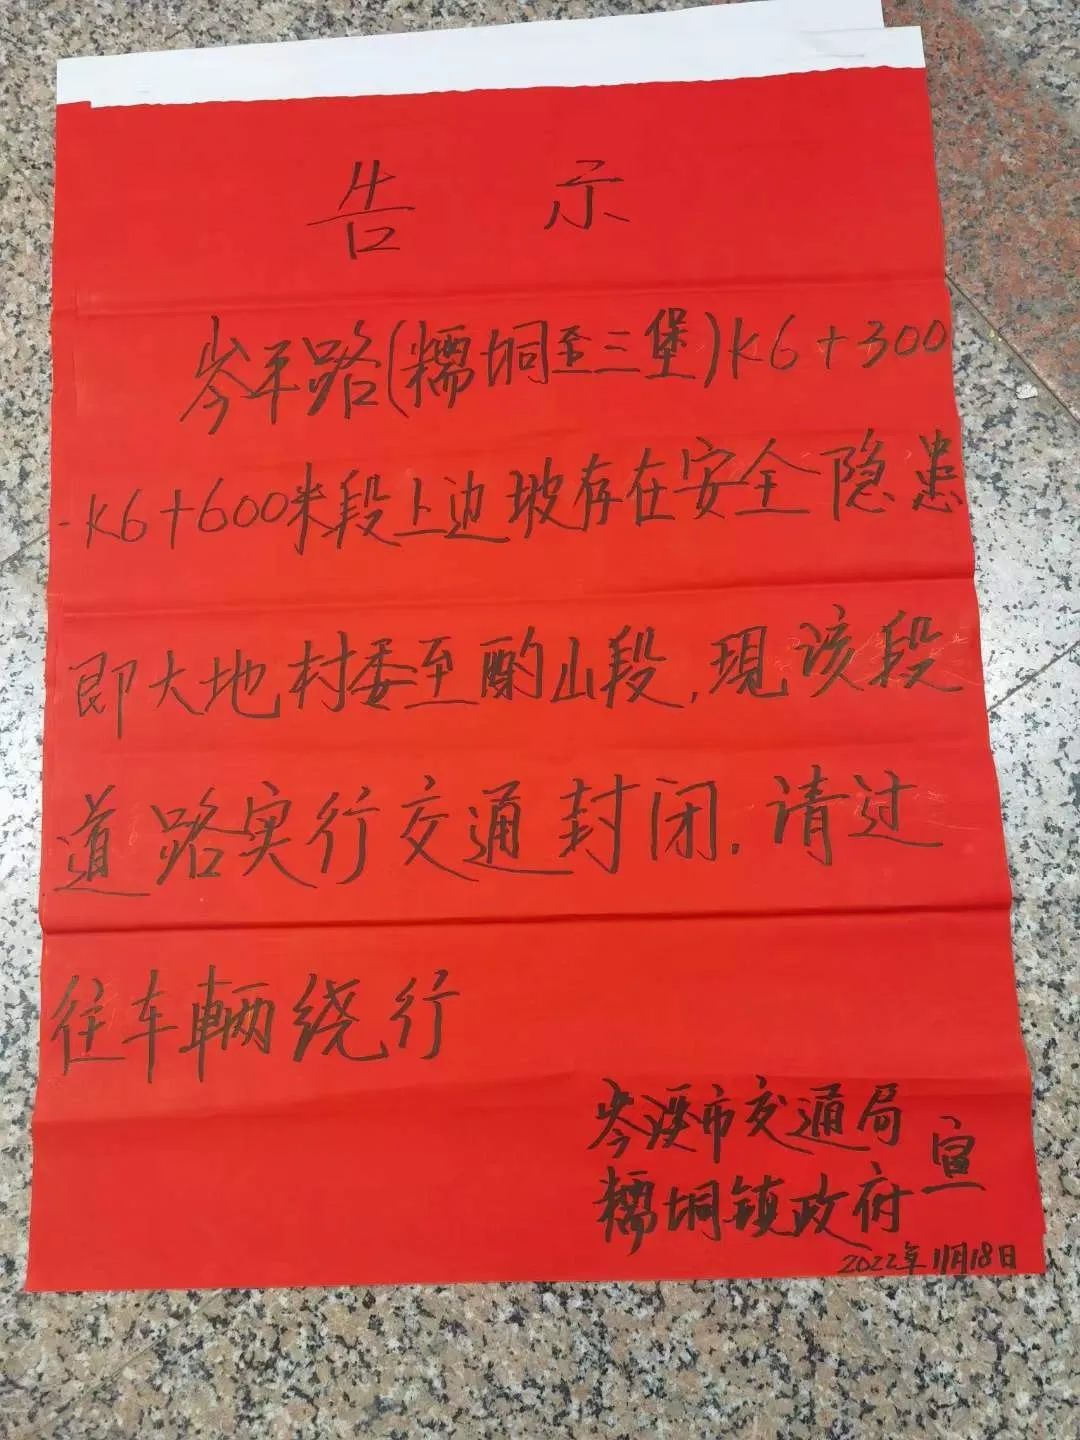 告示
岑平路(糯垌至三堡)K6+300
-K6+600米段上边坡存在安全隐患
即大地村委至酌山段,現该段
道路实行交通封闭.请过
往车辆绕行
岑溪市交通局
糯垌镇政府
宣
2022年11月18日